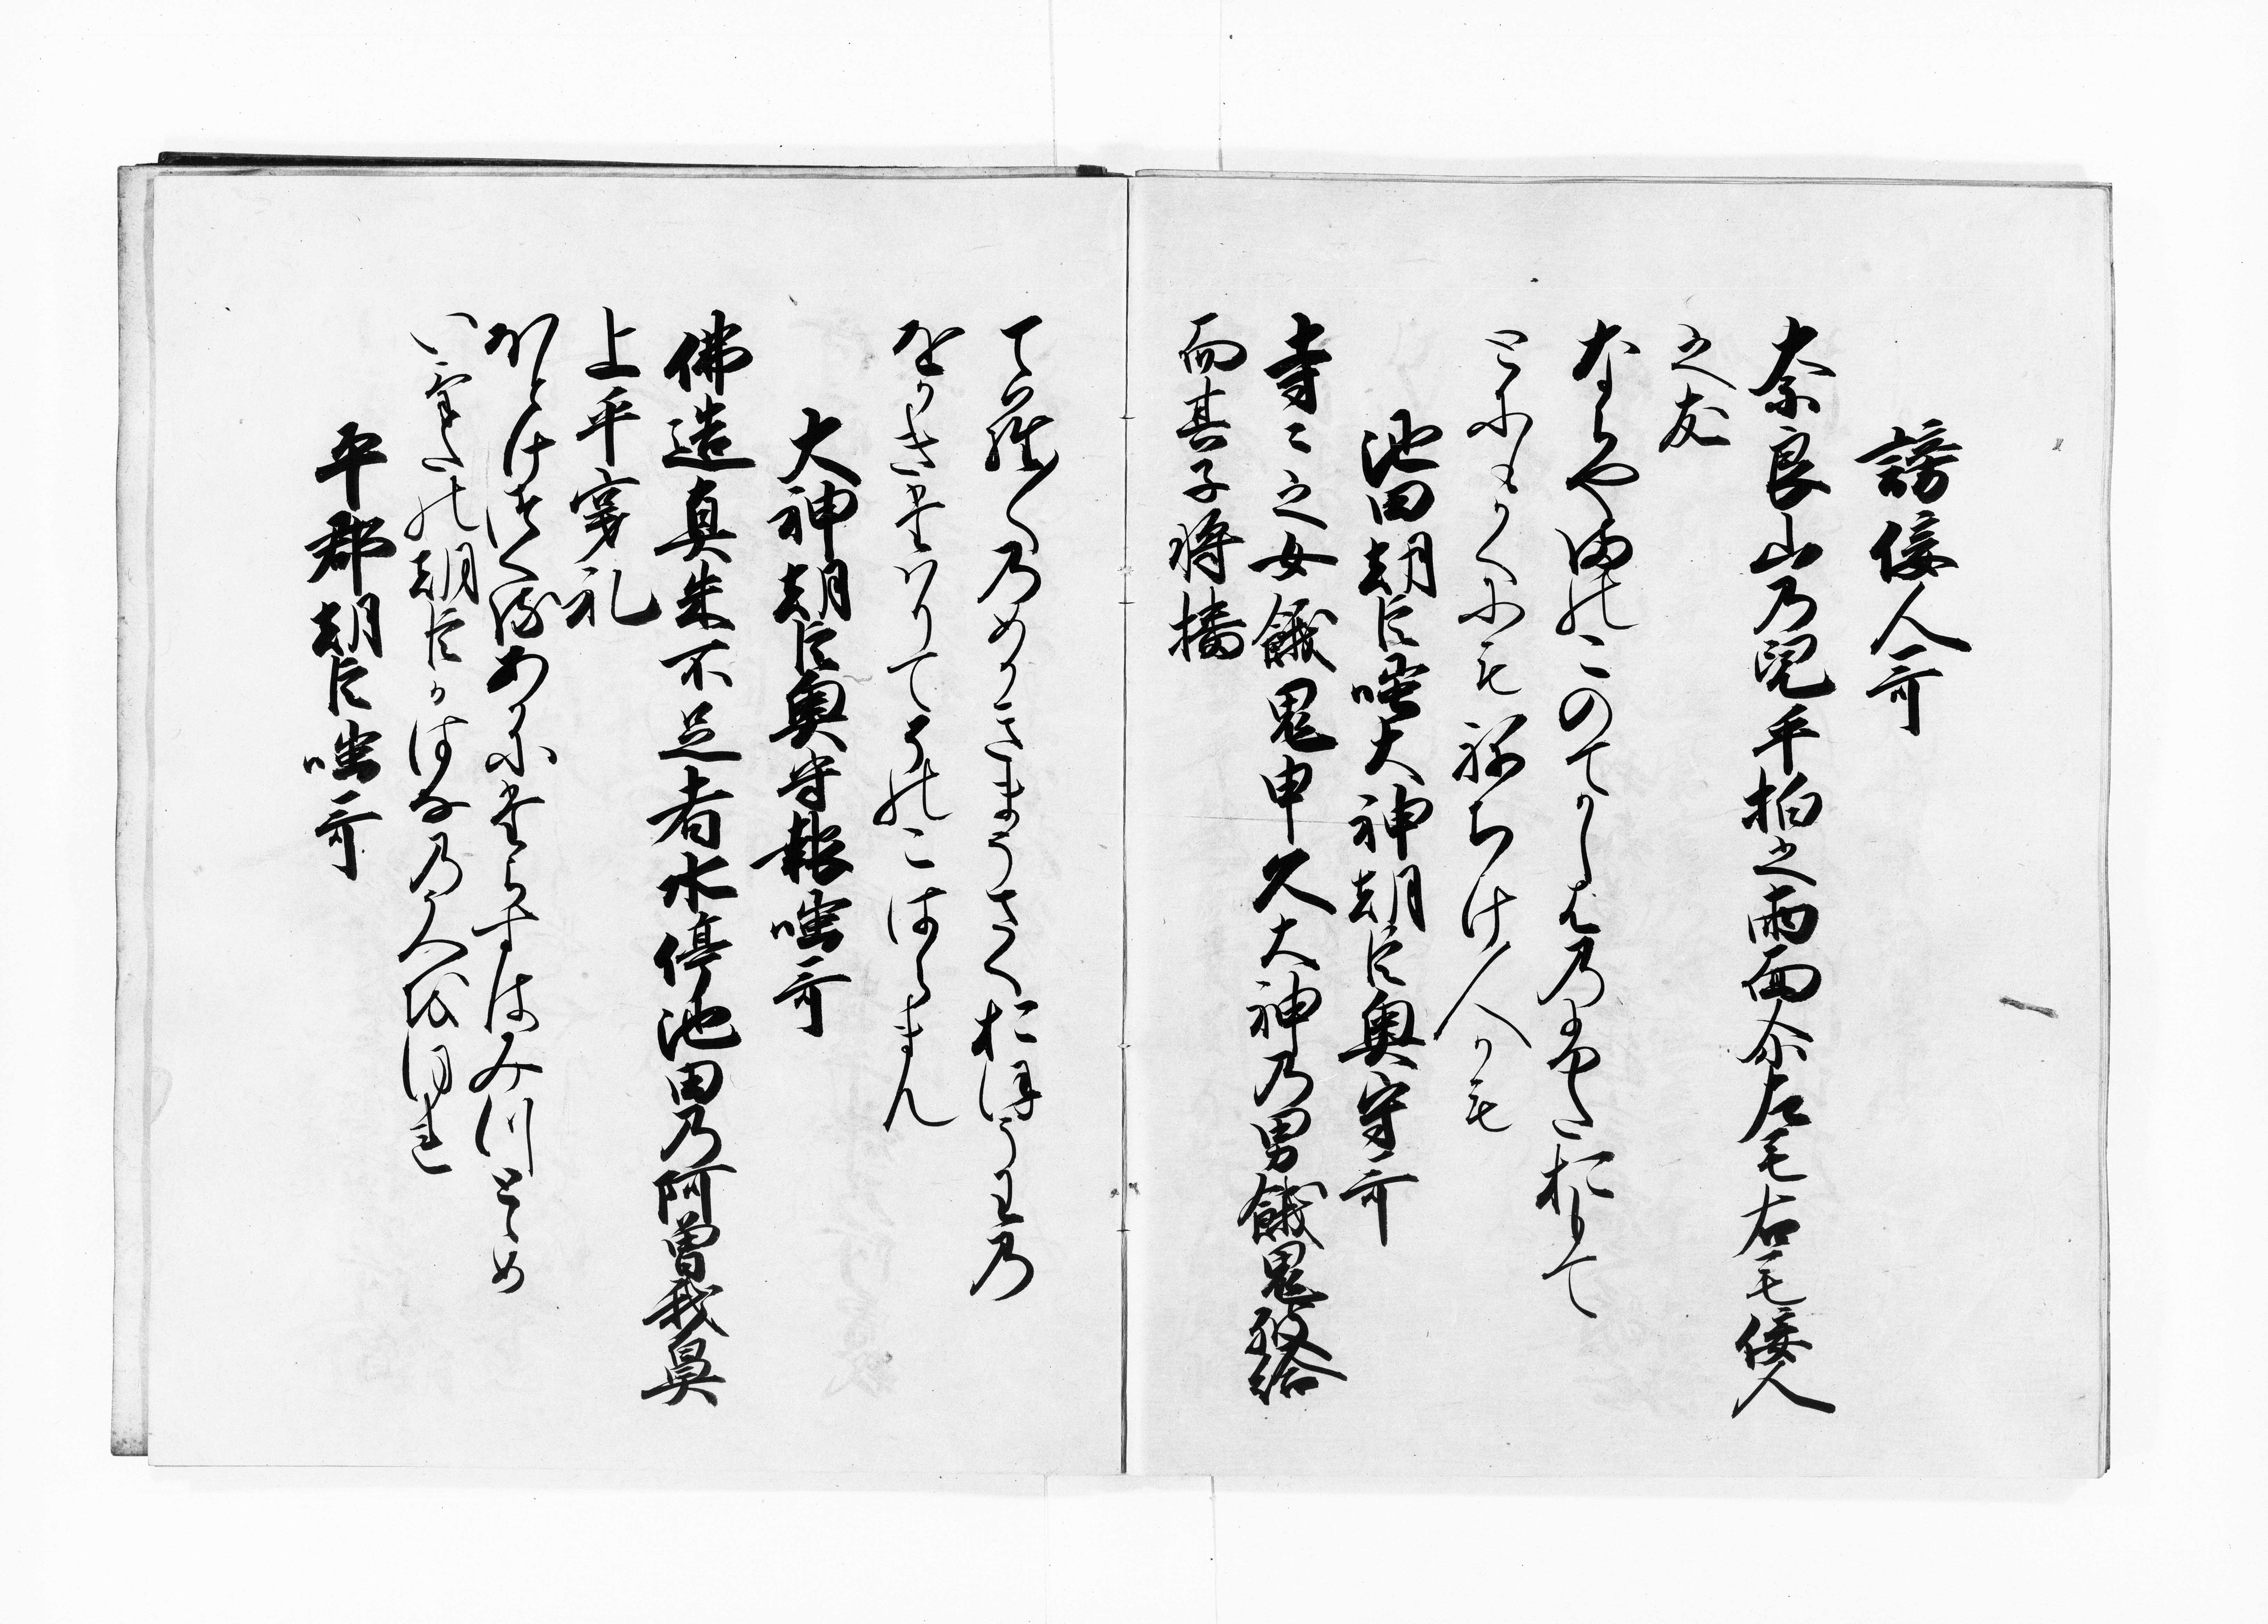 謗佞人哥
奈良山乃児手柏之両面尓左毛右毛佞人
之友
ならやまのこのてかしは乃ふたおもて
とにもかくにもねちけ人かも
池田朝臣嗤大神朝臣奥守哥
寺〻之女餓鬼申久大神乃男餓鬼被給
而其子将播
てら／＼乃めかきまうさくおほうわ乃
をかきたはりてそのこはらまん
大神朝臣奥守報嗤哥
佛造真朱不足者水停池田乃阿曽我鼻
上乎穿礼
ほとけつくるあかにたらすはみつとゝめ
いけたの朝臣かはな乃うへをほれ
平郡朝臣嗤哥